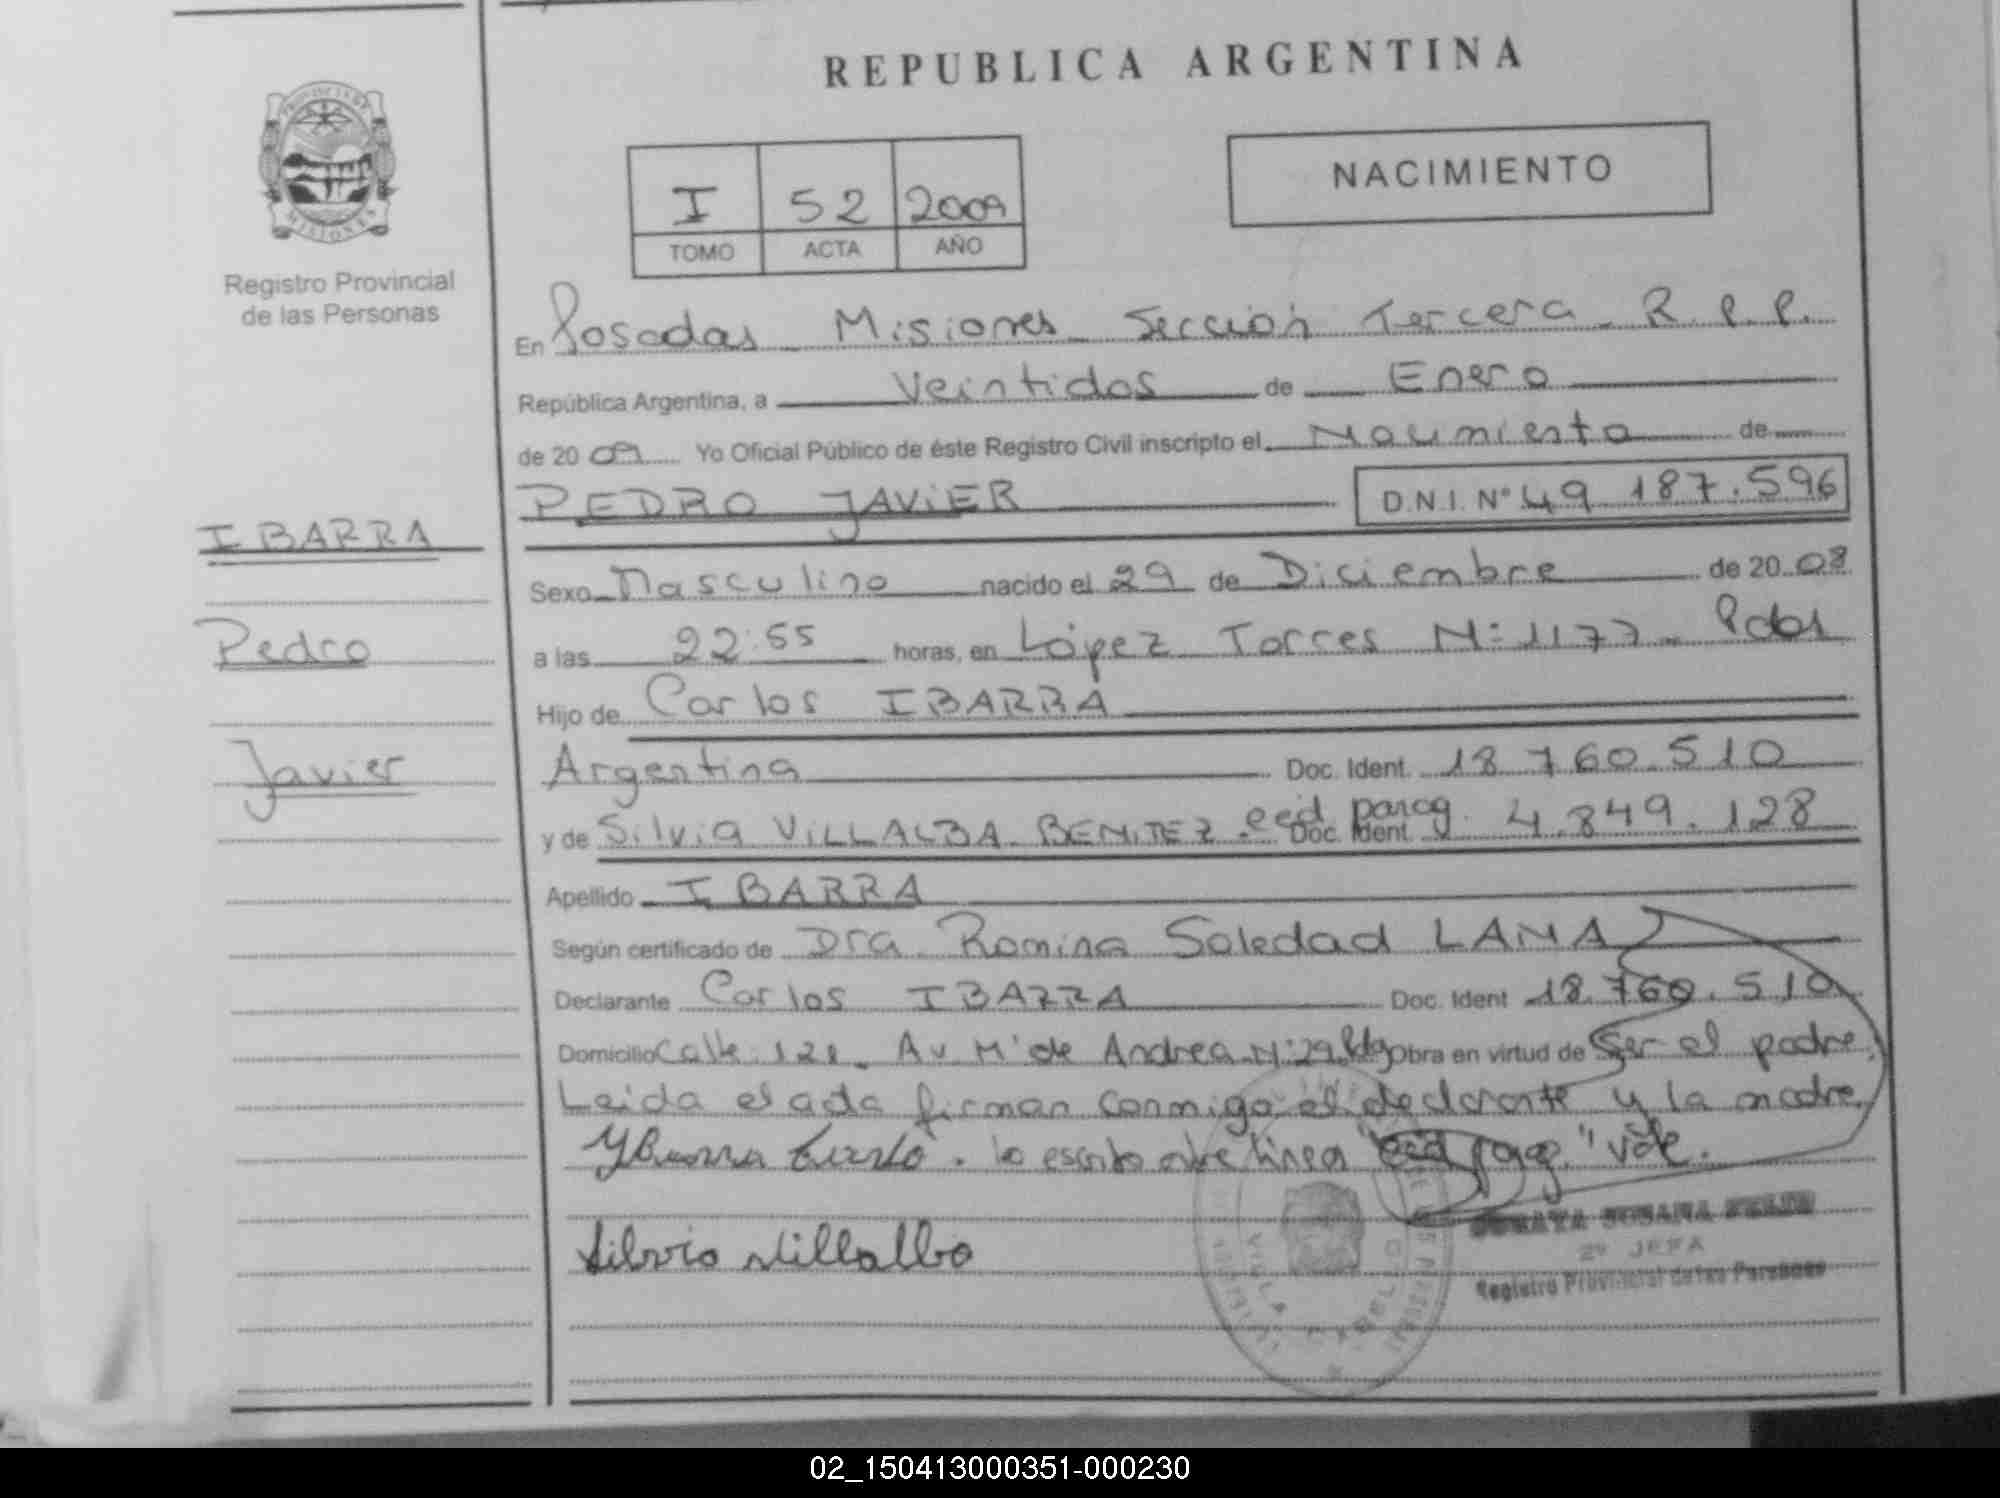 REPUBLICA ARGENTINA
PROVINCIA DE MISIONES
Registro Provincial
de las Personas
I 52 2009
TOMO ACTA AÑO
NACIMIENTO
En Posadas Misiones Sección Tercera R.P.P.
República Argentina, a Veintidos de Enero
de 2009 Yo Oficial Público de éste Registro Civil inscripto el Nacimiento de
PEDRO JAVIER D.N.I. Nº 49 187.596
IBARRA
Pedro
Javier
Sexo Masculino nacido el 29 de Diciembre de 2008
a las 22:55 horas, en López Torres Nº 1177 - Pdas
Hijo de Carlos IBARRA
Argentina Doc. Ident. 18.760.510
y de Silvia VILLALBA BENITEZ ced. parag. Doc. Ident. 4.849.128
Apellido IBARRA
Según certificado de Dra. Romina Soledad LAMA
Declarante Carlos IBARRA Doc. Ident 18.760.510
Domicilio Calle 121 Av Mº de Andrea Nº 29 Obra en virtud de Ser el padre.
Leida el acta firman conmigo el declarante y la madre.
Ybarra Carlos. lo escrito entre linea "ced parag." vale.
Silvia Villalba
SUSANA
2º JEFA
Registro Provincial de las Personas
02_150413000351-000230